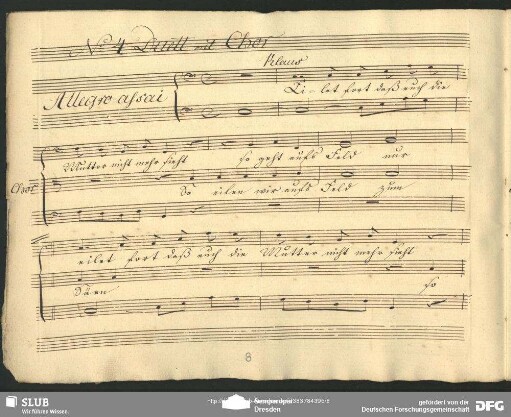 No 4 Duett mit Chor
Klaus
Allegro assai
Ei-let fort daß euch die
Mutter nicht mehr sieht so geht aufs Feld nur
Chor
So eilen wir aufs Feld zum
eilet fort daß euch die Mutter nicht mehr sieht
Säen so
8
SLUB
Wir führen Wissen.
Dresden
gefördert von der
Deutschen Forschungsgemeinschaft
DFG